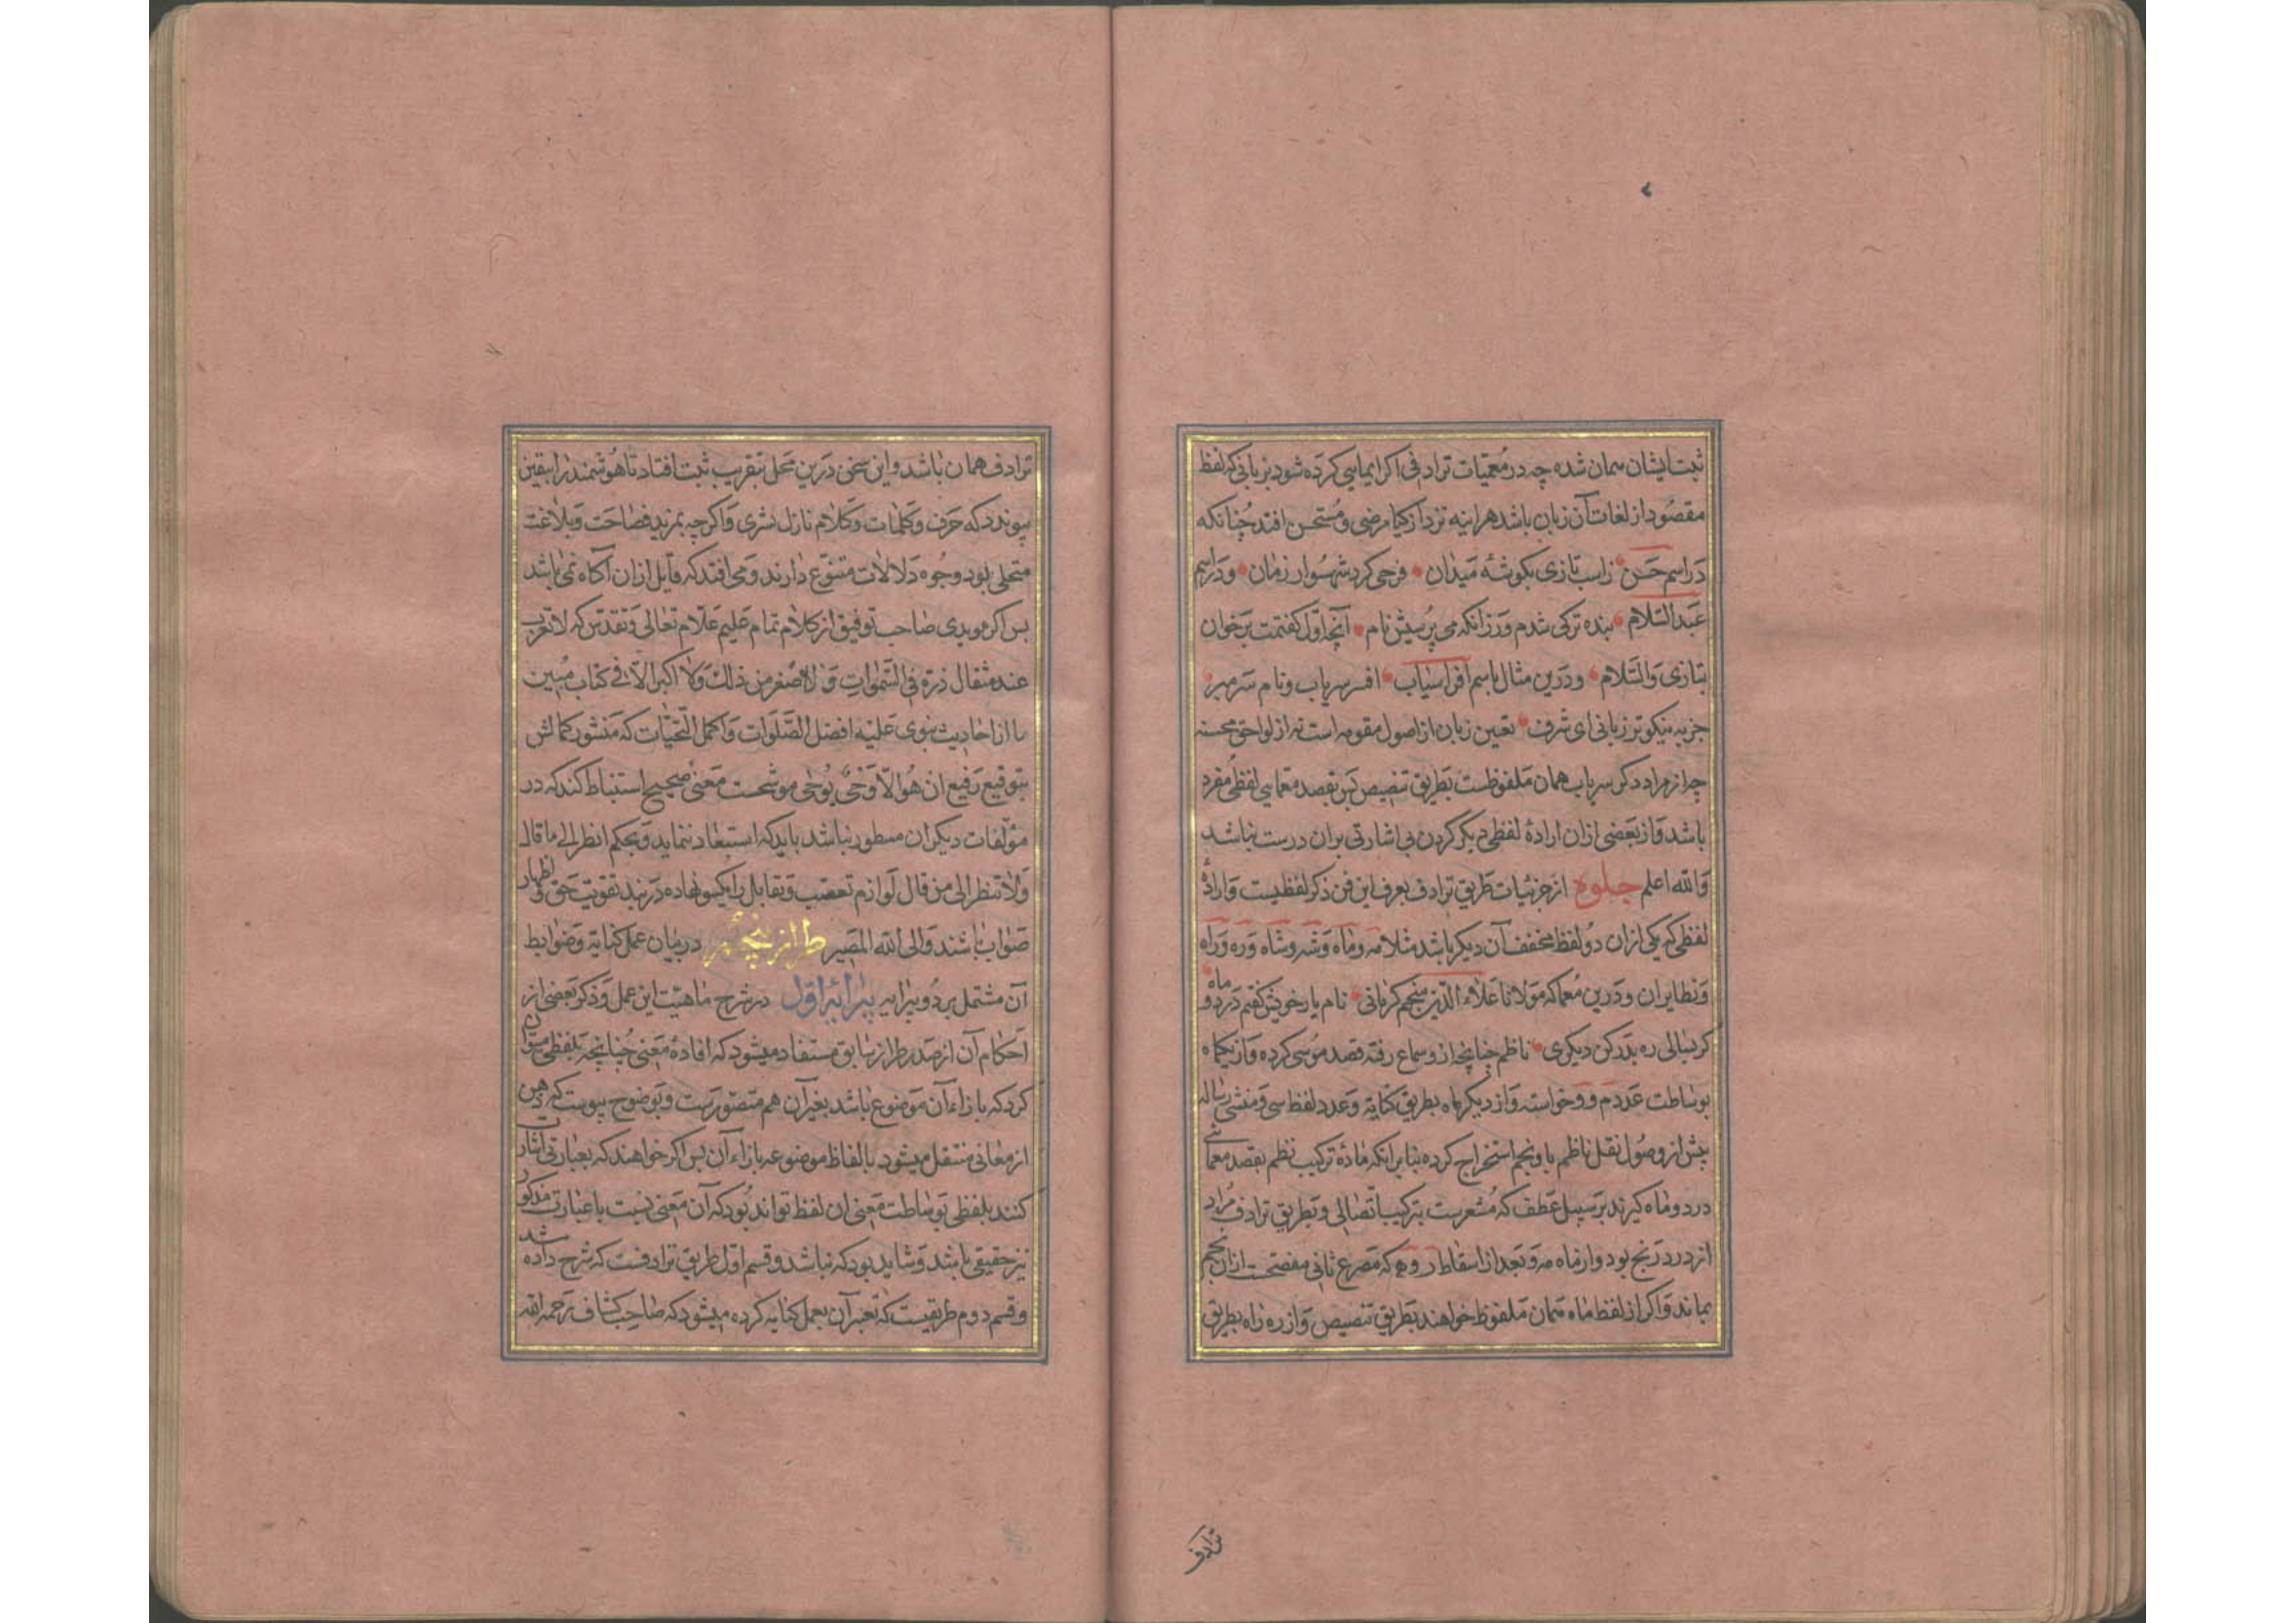 ثبت ایشان سمان شده چه در معمیات ترادفی اکر ایمایی کرده شود بزبانی که لفظ
مقصود از لغات آن زبان باشد هراینه نزد ازکیا مرضی و مستحسن افتد چنانکه
در اسم حسن زاسب تازی بکوشهٔ میدان فرجی کرد شهسوار زمان و در اسم
عبد السلام بنده ترکی شدم ورزانکه می پرسیش نام آنچه اول کفتمت برخوان
بتازی والسلام ودرین مثال باسم افراسیاب افسر سرباب و نام سرمبر
جز به نیکوتر زبانی ای شرف تعیین زبان از اصول مقومه است نه از لواحق محسنه
چرا از مراد ذکر سریاب همان ملفوظست بطریق تنصیص پس بقصد معمایی لفظی مفرد
باشد واز بعضی ازان ارادهٔ لفظی دیکر کردن بی اشارتی بران درست نباشد
والله اعلم جلوه از جزئیات طریق ترادف بعرف این فن ذکر لفظیست وارادهٔ
لفظی که یکی ازان دو لفظ مخفف آن دیکر باشد مثلا مه وماه وشه وشاه وره وراه
ونظایران ودرین معما که مولانا علاء الدین منجم کرمانی نام یار خویش کفتم در دو ماه
کر بنالی ره بدر کن دیکری ناظم چنانچه ازو سماع رفته قصد موسی کرده واز یکماه
بوساطت عدد م و و خواسته واز دیکر ماه بطریق کنایه وعدد لفظ سی ومنشی رساله
پیش از وصول نقل ناظم باو نجم استخراج کرده بنابر انکه مادهٔ ترکیب نظم بقصد معمائی
درد وماه کیرند بر سبیل عطف که مشعرست بترکیب اتصالی وبطریق ترادف مراد
از درد رنج بود واز ماه مه وبعد از اسقاط ر وه که مصرع ثانی مفصحست ازان نجم
بماند واکر از لفظ ماه همان ملفوظ خواهند بطریق تنصیص واز ره راه بطریق
ترادف
ترادف همان باشد واین سخن درین محل بتقریب ثبت افتاد تا هوشمند را بیقین
پیوندد که حرف وکلمات وکلام نازل بشری واکرچه بمزید فصاحت وبلاغت
متحلی بود وجوه دلالات متنوع دارند ومی افتد که قایل ازان آکاه نمی باشد
پس اکر مویدی صاحب توفیق از کلام تمام علیم علام تعالی وتقدس که لا یعزب
عنه مثقال ذرة فی السموات ولا اصغر من ذلك ولا اکبر الا فی کتاب مبین
یا از احادیث نبوی علیه افضل الصلوات واکمل التحیات که منشور کمالش
بتوقیع رفیع ان هو الا وحی یوحی موشحست معنی صحیح استنباط کند که در
مؤلفات دیکران مسطور نباشد باید که استبعاد ننماید وبحکم انظر الی ما قال
ولا تنظر الی من قال لوازم تعصب وتقابل را یکسو نهاده در بند تقویت حق واظهار
صواب باشند والی الله المصیر طراز پنجم در بیان عمل کنایه وضوابط
آن مشتمل بر دو پیرایه پیرایهٔ اول در شرح ماهیت این عمل وذکر بعضی از
احکام آن از صدر طراز سابق مستفاد میشود که افادهٔ معنی چنانچه بلفظی میتوان
کرد که بازاء آن موضوع باشد بغیر آن هم متصورست وبوضوح پیوست که ذهن
از معانی منتقل میشود بالفاظ موضوعه بازاء آن پس اکر خواهند که بعبارتی اشارت
کنند بلفظی بوساطت معنی ان لفظ تواند بود که آن معنی نسبت با عبارت مذکور
نیز حقیقی باشد وشاید بود که نباشد وقسم اول طریق ترادفست که شرح داده شد
وقسم دوم طریقیست که تعبیر آن بعمل کنایه کرده میشود که صاحب کشاف رحمه الله